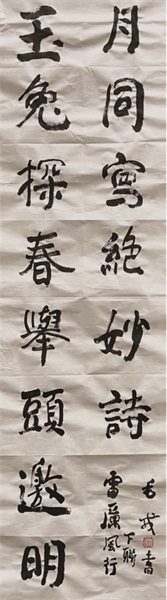 玉兔探春舉頭邀明
月同寫絕妙詩
雷厲風行
下聯
書